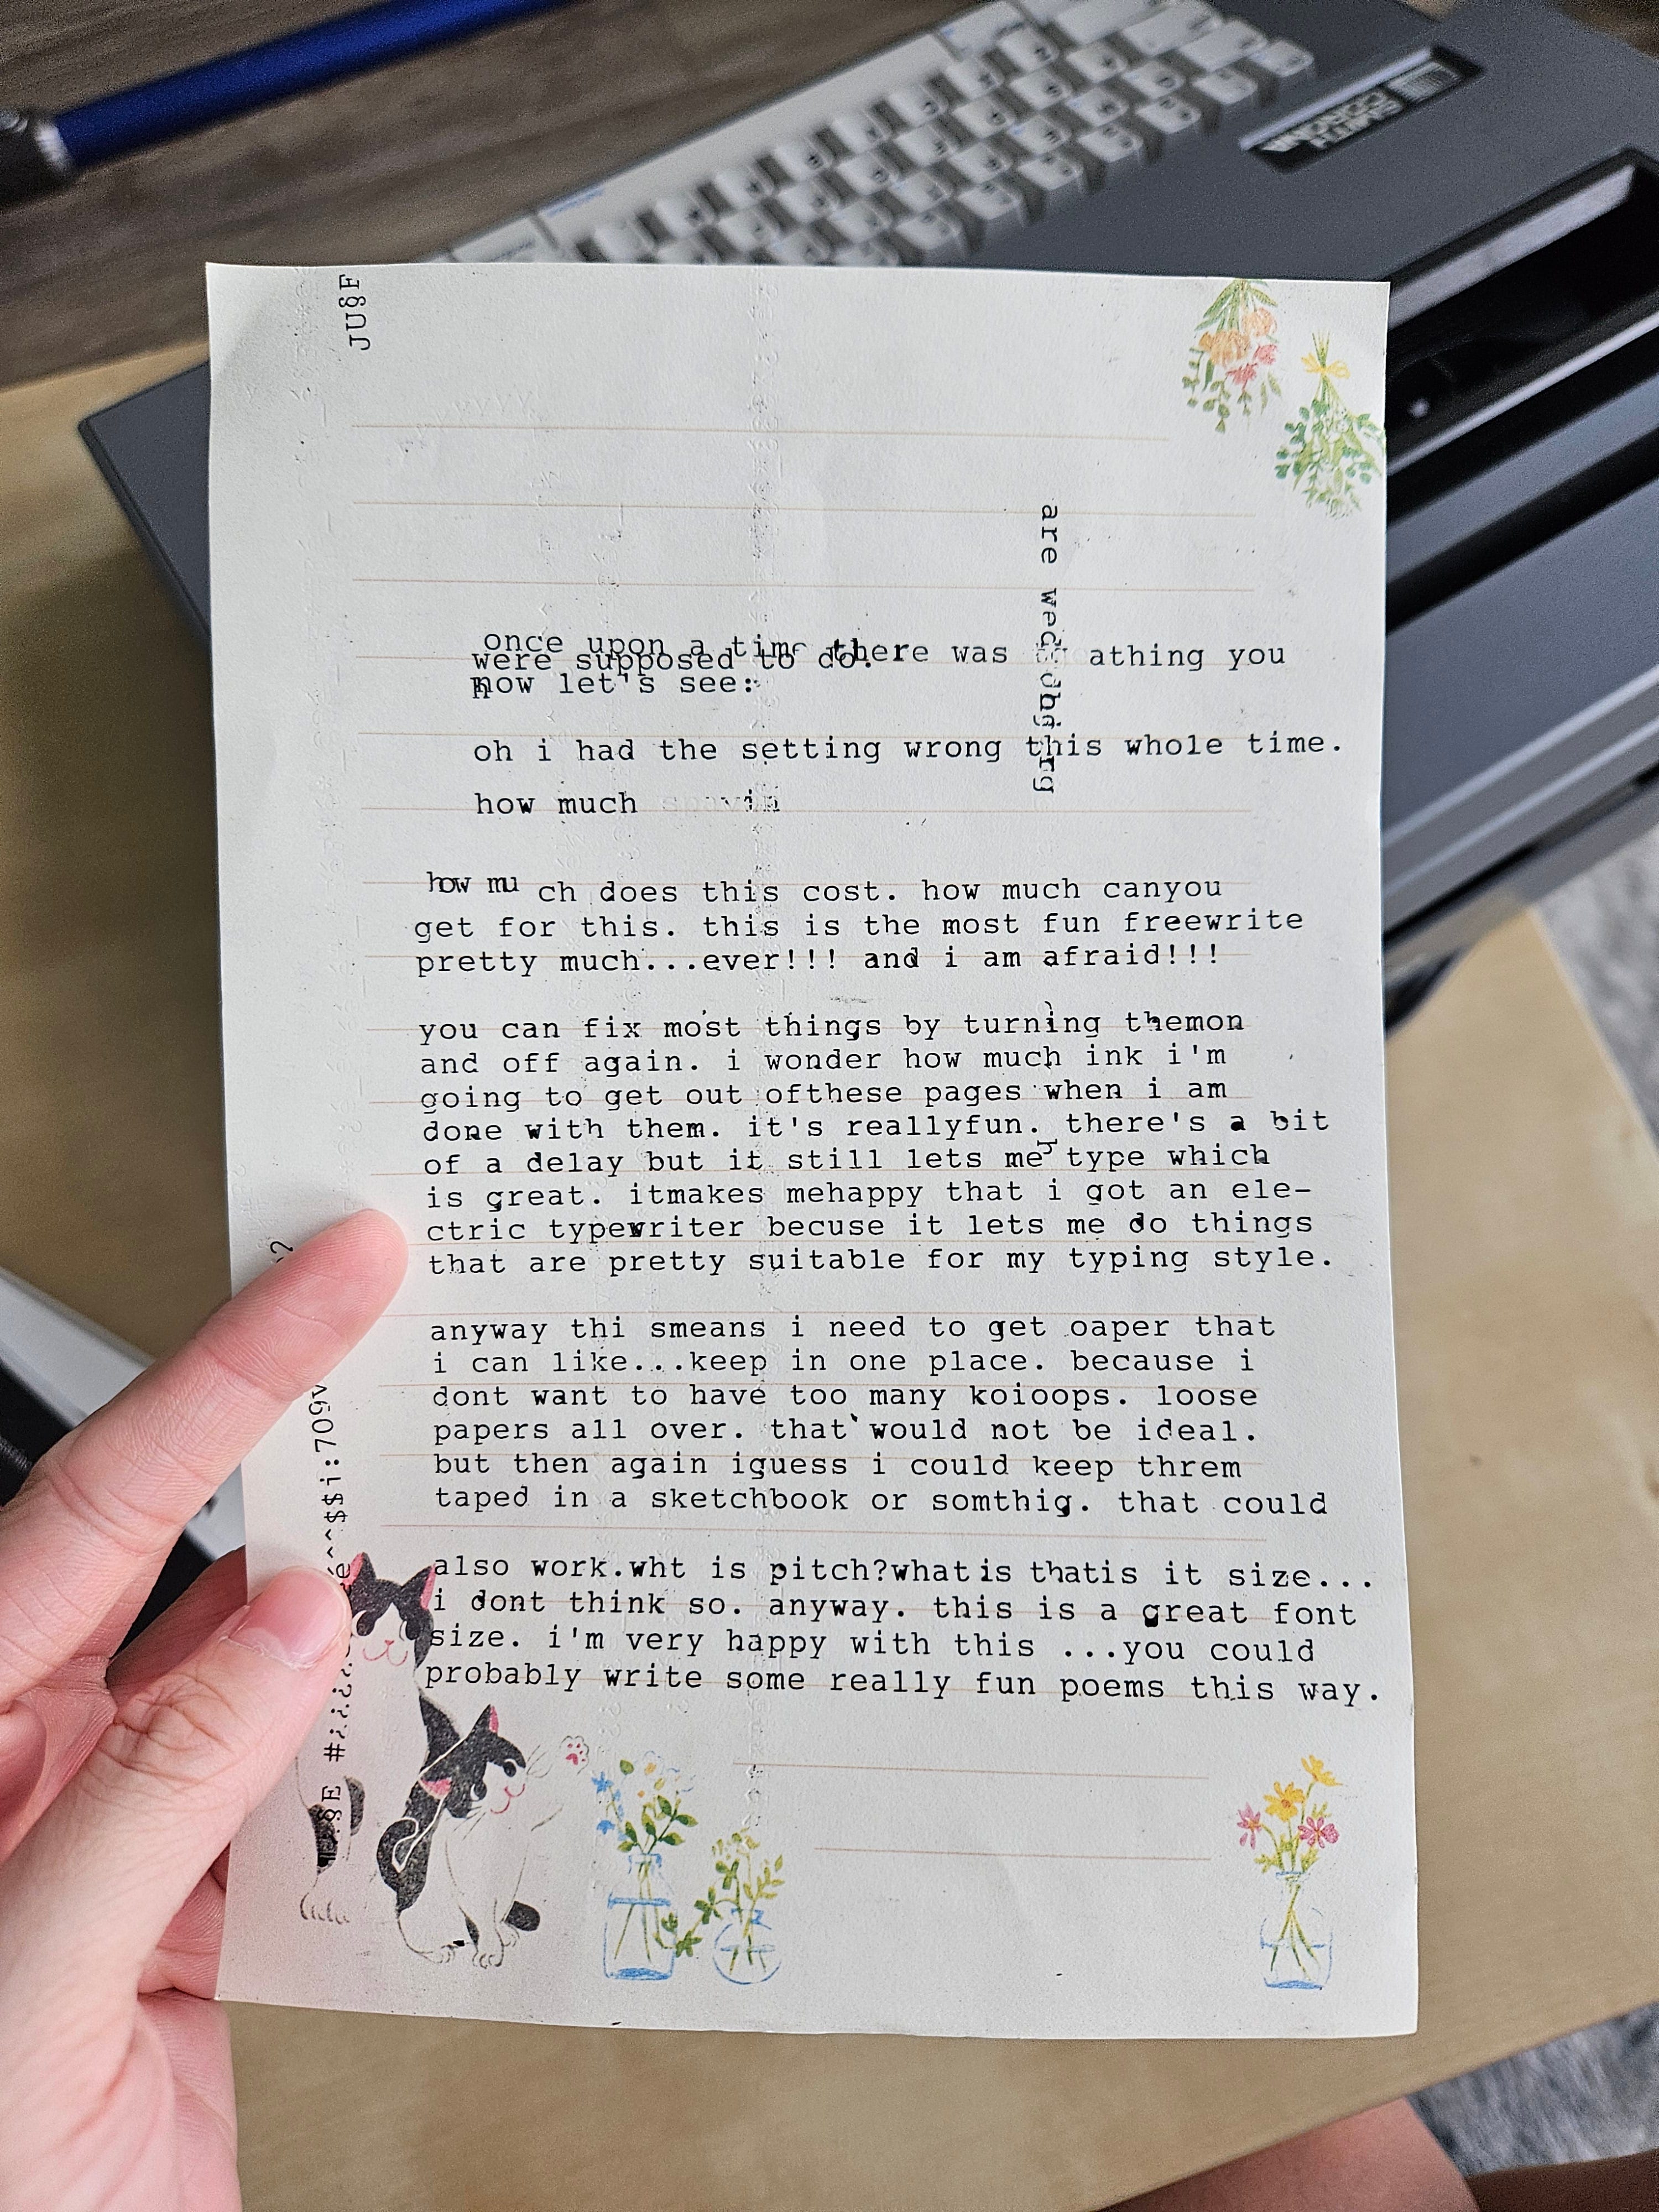 SMITH
CORONA
JU§F
are we doing
once upon a time there was athing you
were supposed to do.
now let's see:
oh i had the setting wrong this whole time.
how much
how mu ch does this cost. how much canyou
get for this. this is the most fun freewrite
pretty much...ever!!! and i am afraid!!!
you can fix most things by turning themon
and off again. i wonder how much ink i'm
going to get out ofthese pages when i am
done with them. it's reallyfun. there's a bit
of a delay but it still lets me type which
is great. itmakes mehappy that i got an ele-
ctric typewriter becuse it lets me do things
that are pretty suitable for my typing style.
anyway thi smeans i need to get oaper that
i can like...keep in one place. because i
dont want to have too many koioops. loose
papers all over. that would not be ideal.
but then again iguess i could keep threm
taped in a sketchbook or somthig. that could
also work.wht is pitch?what is thatis it size...
i dont think so. anyway. this is a great font
size. i'm very happy with this ...you could
probably write some really fun poems this way.